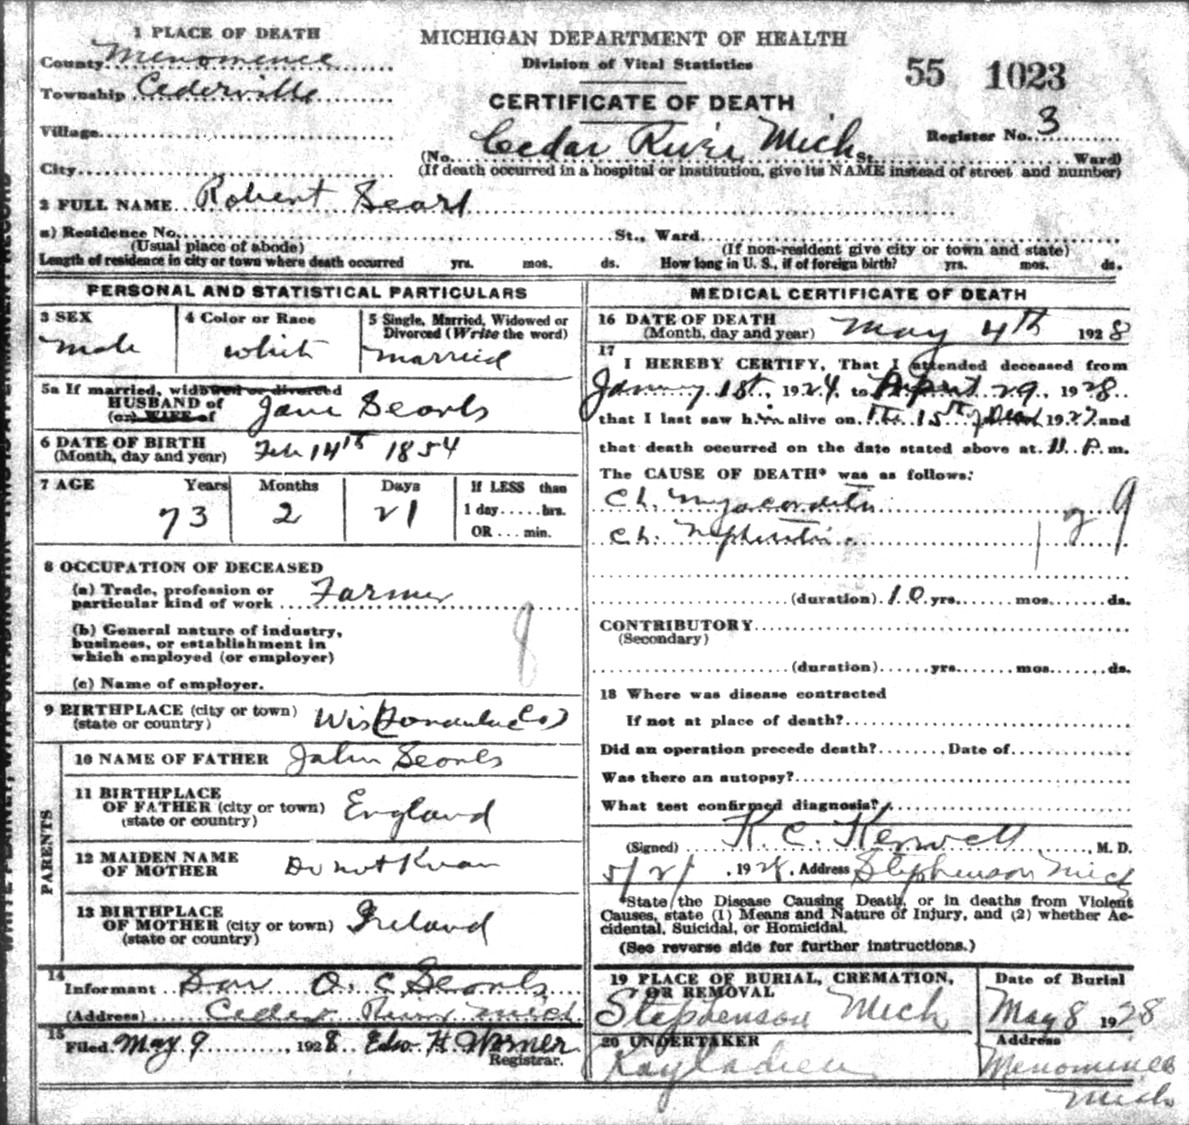 1 PLACE OF DEATH
County Menominee
Township Cederville
Village
City
MICHIGAN DEPARTMENT OF HEALTH
Division of Vital Statistics
CERTIFICATE OF DEATH
55 1023
Register No. 3
(No. Cedar River Mich St. Ward)
(If death occurred in a hospital or institution, give its NAME instead of street and number)
2 FULL NAME Robert Searl
a) Residence No. St., Ward
(Usual place of abode) (If non-resident give city or town and state)
Length of residence in city or town where death occurred yrs. mos. ds. How long in U. S., if of foreign birth? yrs. mos. ds.
PERSONAL AND STATISTICAL PARTICULARS
3 SEX
male
4 Color or Race
whit
5 Single, Married, Widowed or
Divorced (Write the word)
married
5a If married, widowed or divorced
HUSBAND of
(or) WIFE of
Jane Searls
6 DATE OF BIRTH
(Month, day and year) Feb 14th 1854
7 AGE Years Months Days
73 2 21
If LESS than
1 day hrs.
OR min.
8 OCCUPATION OF DECEASED
(a) Trade, profession or
particular kind of work Farmer
(b) General nature of industry,
business, or establishment in
which employed (or employer)
(c) Name of employer.
9 BIRTHPLACE (city or town)
(state or country) Wis
PARENTS
10 NAME OF FATHER John Searls
11 BIRTHPLACE
OF FATHER (city or town)
(state or country) England
12 MAIDEN NAME
OF MOTHER Do not Know
13 BIRTHPLACE
OF MOTHER (city or town)
(state or country) Ireland
14
Informant O. C Searls
(Address) Ceder River Mich
15
Filed May 9, 1928 Edw H. Warner
Registrar.
MEDICAL CERTIFICATE OF DEATH
16 DATE OF DEATH
(Month, day and year) May 4th 1928
17
I HEREBY CERTIFY, That I attended deceased from
January 1st, 1924 to April 29, 1928
that I last saw him alive on 15th 1927 and
that death occurred on the date stated above at 11 P. m.
The CAUSE OF DEATH* was as follows:
Ch. Myocarditis
Ch. Nephritis
9
(duration) 10 yrs. mos. ds.
CONTRIBUTORY
(Secondary)
(duration) yrs. mos. ds.
18 Where was disease contracted
If not at place of death?
Did an operation precede death? Date of
Was there an autopsy?
What test confirmed diagnosis?
(Signed) K. C. Kerwell, M. D.
5/21, 1928, Address Stephenson Mich
*State the Disease Causing Death, or in deaths from Violent
Causes, state (1) Means and Nature of Injury, and (2) whether Ac-
cidental, Suicidal, or Homicidal.
(See reverse side for further instructions.)
19 PLACE OF BURIAL, CREMATION,
OR REMOVAL
Stephenson Mich
Date of Burial
May 8 1928
20 UNDERTAKER
Address
Menominee
Mich